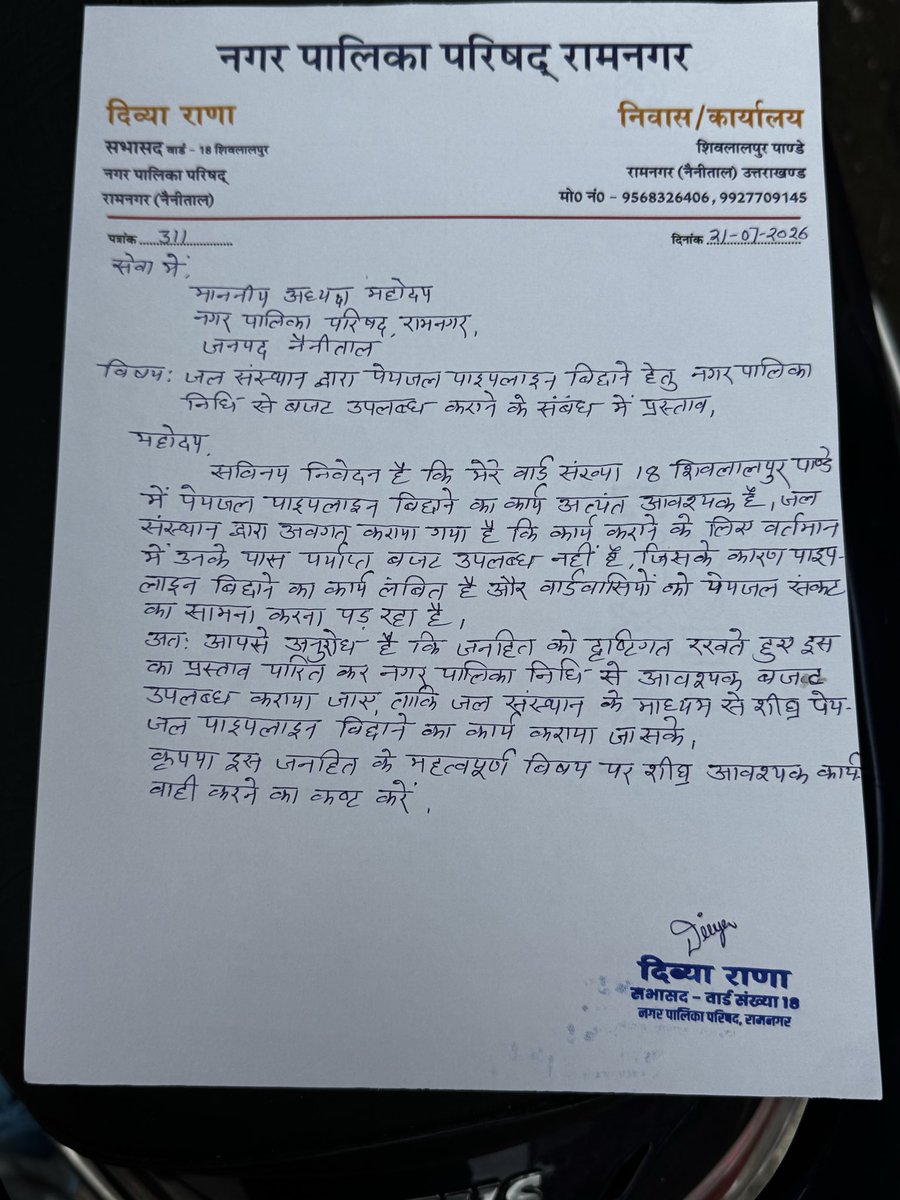 नगर पालिका परिषद् रामनगर
दिव्या राणा
सभासद वार्ड - 18 शिवलालपुर
नगर पालिका परिषद्
रामनगर (नैनीताल)
निवास/कार्यालय
शिवलालपुर पाण्डे
रामनगर (नैनीताल) उत्तराखण्ड
मो0 नं0 - 9568326406, 9927709145
पत्रांक 311
दिनांक 21-07-2026
सेवा में,
माननीय अध्यक्ष महोदय
नगर पालिका परिषद्, रामनगर,
जनपद नैनीताल
विषय: जल संस्थान द्वारा पेयजल पाइपलाइन बिछाने हेतु नगर पालिका
निधि से बजट उपलब्ध कराने के संबंध में प्रस्ताव,
महोदय,
सविनय निवेदन है कि मेरे वार्ड संख्या 18 शिवलालपुर पाण्डे
में पेयजल पाइपलाइन बिछाने का कार्य अत्यंत आवश्यक है, जल
संस्थान द्वारा अवगत कराया गया है कि कार्य कराने के लिए वर्तमान
में उनके पास पर्याप्त बजट उपलब्ध नहीं है, जिसके कारण पाइप-
लाइन बिछाने का कार्य लंबित है और वार्डवासियों को पेयजल संकट
का सामना करना पड़ रहा है,
अतः आपसे अनुरोध है कि जनहित को दृष्टिगत रखते हुए इस
का प्रस्ताव पारित कर नगर पालिका निधि से आवश्यक बजट
उपलब्ध कराया जाए, ताकि जल संस्थान के माध्यम से शीघ्र पेय-
जल पाइपलाइन बिछाने का कार्य कराया जा सके,
कृपया इस जनहित के महत्वपूर्ण विषय पर शीघ्र आवश्यक कार्य-
वाही करने का कष्ट करें,
दिव्या राणा
सभासद - वार्ड संख्या 18
नगर पालिका परिषद, रामनगर